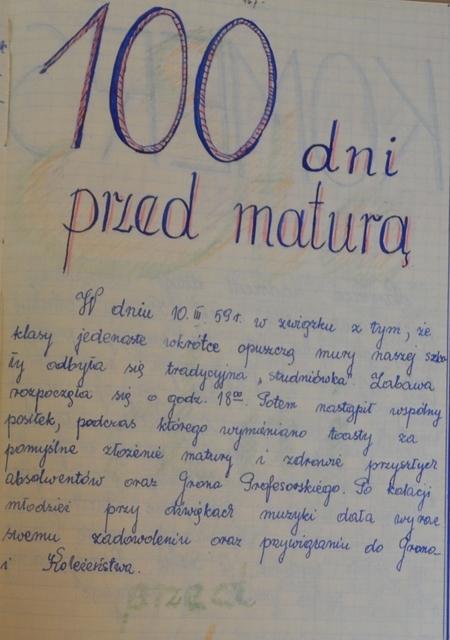 100 dni
przed maturą
W dniu 10.III.59r. w związku z tym, że
klasy jedenaste wkrótce opuszczą mury naszej szko-
ły odbyła się tradycyjna "studniówka". Zabawa
rozpoczęła się o godz. 18⁰⁰. Potem nastąpił wspólny
posiłek, podczas którego wymieniano toasty za
pomyślne złożenie matury i zdrowie przyszłych
absolwentów oraz Grona Profesorskiego. Po kolacji
młodzież przy dźwiękach muzyki dała wyraz
swemu zadowoleniu oraz przywiązaniu do Grona
i Koleżeństwa.